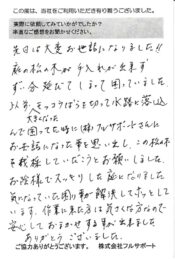 この度は、当社をご利用いただき有り難うございました。
実際に依頼してみていかがでしたか？
率直なご感想をお聞かせください。
先日は大変お世話になりました!!
庭の松の木が手入れが出来ず
ず一分延びてしまって困っていました
以年、モッコクばらを切って水路に落込
大きくなった
んで困ってた時に(株)フルサポートさんに
お世話になった事を思い出し、この松の木
を伐採していただこうとお願いしました。
お陰様でスッキリした庭になりました
気になっていた困り事が解決してホッとして
います。作業に来た方は気さくな方なので
安心しておまかせする事が出来ました
ありがとうございました。
ご協力ありがとうございます。 株式会社フルサポート